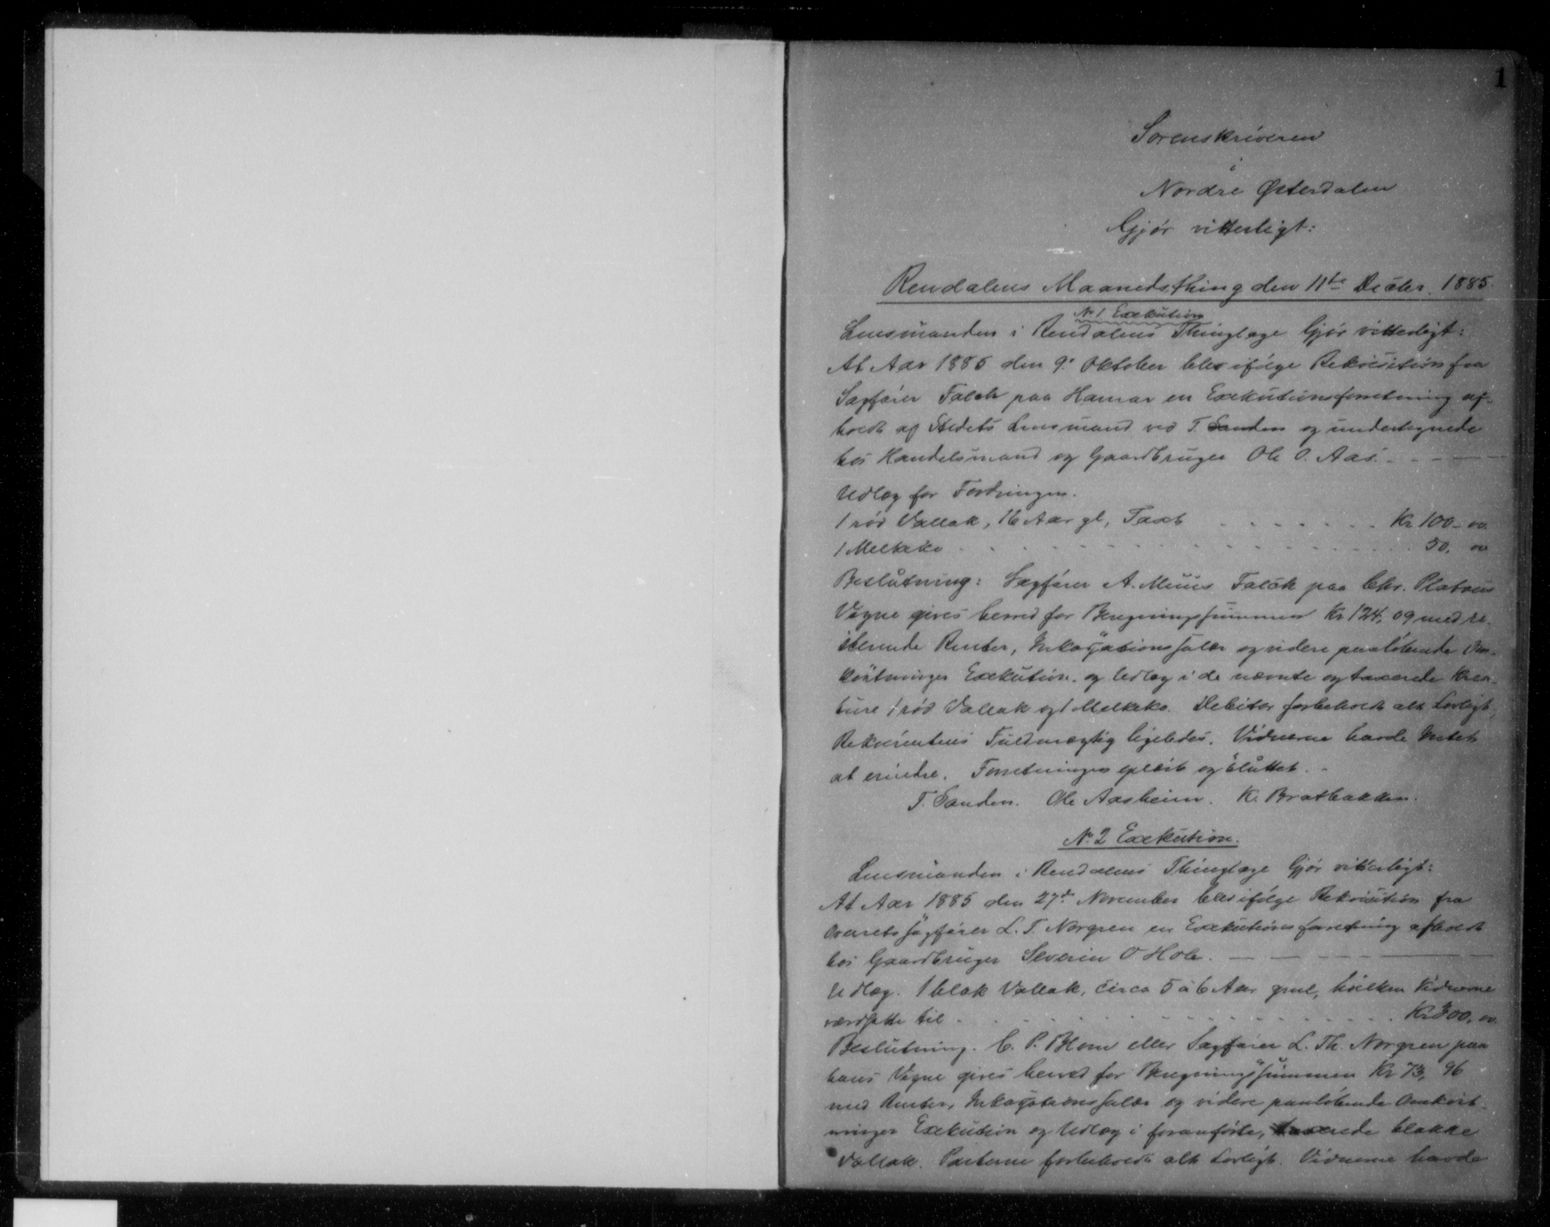 1
Sorenskriveren
i
Nordre Østerdalen
Gjør vitterligt:
Rendalens Maanedsthing den 11te Decbr. 1885
No 1 Exekution
Lensmanden i Rendalens Thinglage Gjør vitterligt:
At Aar 1885 den 9. Oktober blev ifølge Rekvisition fra
Sagfører Falck paa Hamar en Exekutionsforretning af-
holdt af Stedets Lensmand ved T. Sanden og undertegnede
hos Handelsmand og Gaardbruger Ole O. Aas.
Udlæg for Fordringen.
1 rød Vallak, 16 Aar gl, Taxt Kr 100-00
1 Melkeko 50. 00
Beslutning: Sagfører A. Muus Falck paa Chr. Platous
Vegne gives herved for Beregningssummen Kr 124,09 med re-
sterende Renter, Inkassationssalær og videre paaløbende Om-
kostninger Exekution og Udlæg i de nævnte og taxerede Krea-
ture 1 rød Vallak og 1 Melkeko. Debitor forbeholdt alt Lovligt,
Rekvirentens Fuldmægtig ligeledes. Vidnerne havde Intet
at erindre. Forretningen oplæst og sluttet.
T. Sanden. Ole Aasheim. K. Bratbakken.
No 2 Exekution.
Lensmanden i Rendalens Thinglage Gjør vitterligt:
At Aar 1885 den 27de November blev ifølge Rekvisition fra
Overretssagfører L. T. Norgren en Exekutionsforretning afholdt
hos Gaardbruger Severin O Hole.
Udlæg. 1 blak Vallak, circa 5 a 6 Aar gml, hvilken Vidnerne
værdsatte til Kr 300,00
Beslutning. C. P. Blom eller Sagfører L. Th. Norgren paa
hans Vegne gives herved for Beregningssummen Kr 73,96
med Renter, Inkassationssalær og videre paaløbende Omkost-
ninger Exekution og Udlæg i foranførte, taxerede blakke
Vallak. Parterne forbeholdt alt Lovligt. Vidnerne havde